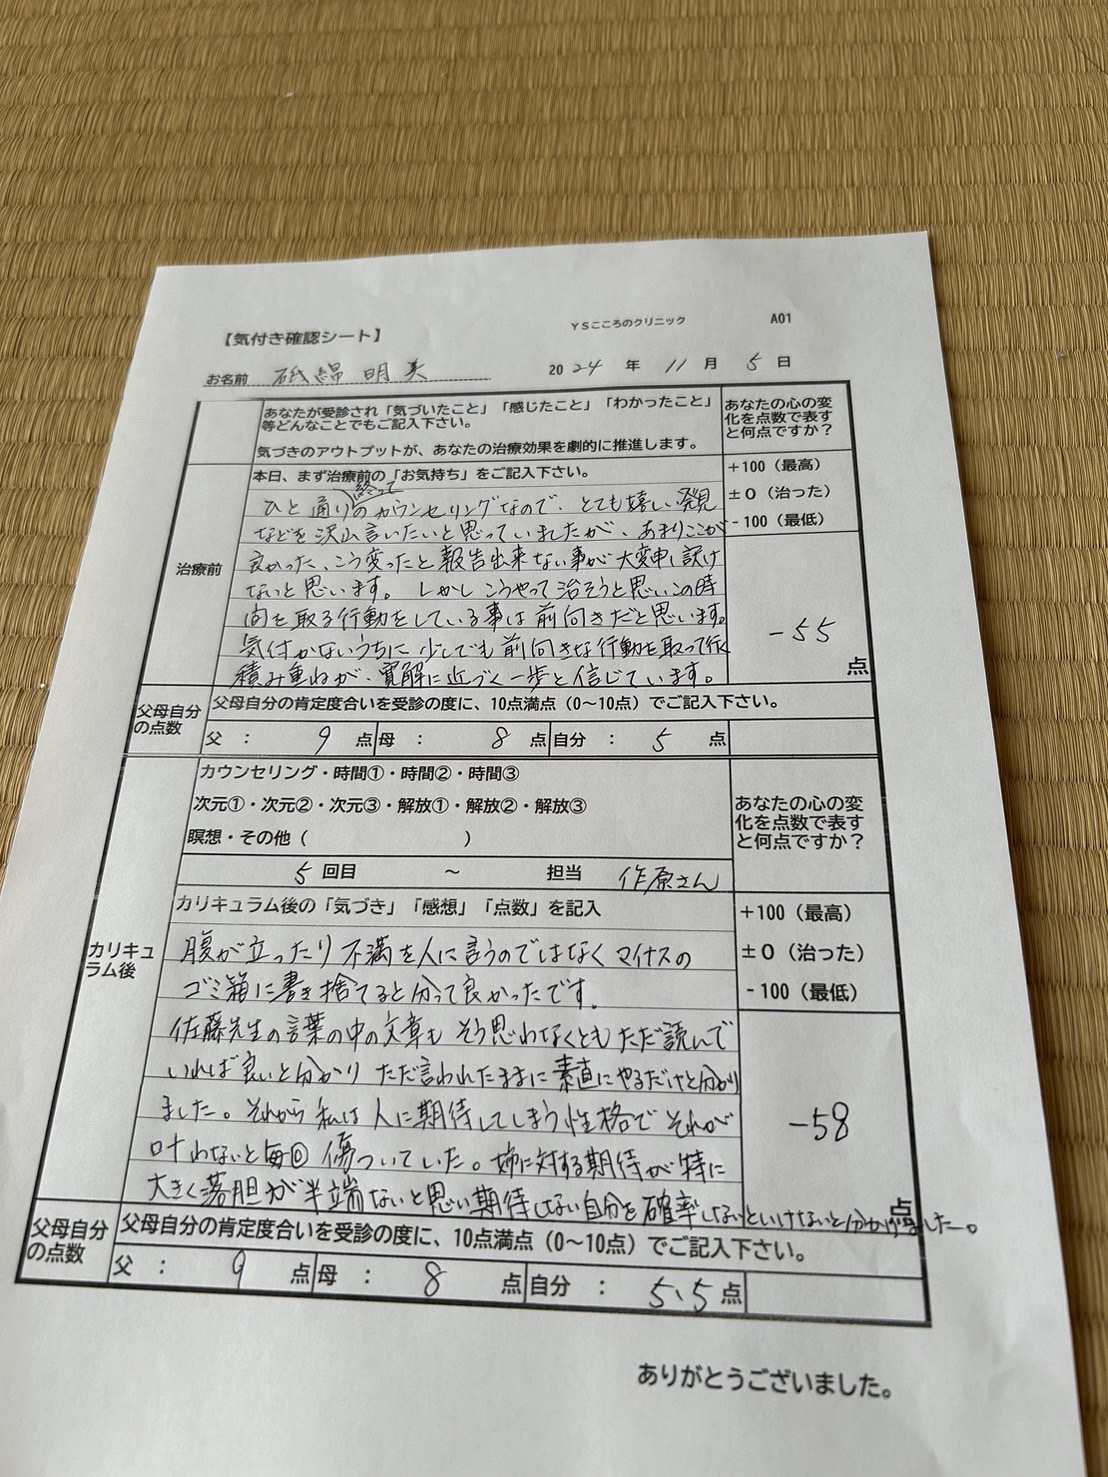 YSこころのクリニック A01
【気付き確認シート】
お名前 磯綿 明美 2024 年 11 月 5 日
あなたが受診され「気づいたこと」「感じたこと」「わかったこと」
等どんなことでもご記入下さい。
気づきのアウトプットが、あなたの治療効果を劇的に推進します。
あなたの心の変
化を点数で表す
と何点ですか？
治療前
本日、まず治療前の「お気持ち」をご記入下さい。
終って
ひと通りのカウンセリングなので、とても嬉しい発見
などを沢山言いたいと思っていましたが、あまりここが
良かった、こう変ったと報告出来ない事が大変申し訳け
ないと思います。しかしこうやって治そうと思いこの時
間を取る行動をしている事は前向きだと思います。
気付かないうちに少しでも前向きな行動を取って行く
積み重ねが、寛解に近づく一歩と信じています。
+100（最高）
±0（治った）
-100（最低）
-55
点
父母自分
の点数
父母自分の肯定度合いを受診の度に、10点満点（0～10点）でご記入下さい。
父 ： 9 点 母 ： 8 点 自分 ： 5 点
カリキュ
ラム後
カウンセリング・時間①・時間②・時間③
次元①・次元②・次元③・解放①・解放②・解放③
瞑想・その他（ ）
5 回目 ～ 担当 作原さん
あなたの心の変
化を点数で表す
と何点ですか？
カリキュラム後の「気づき」「感想」「点数」を記入
腹が立ったり不満を人に言うのではなくマイナスの
ゴミ箱に書き捨てると分って良かったです。
佐藤先生の言葉の中の文章もそう思わなくともただ読んで
いれば良いと分かりただ言われたままに素直にやるだけと分かり
ました。それから私は人に期待してしまう性格でそれが
叶わないと毎回傷ついていた。姉に対する期待が特に
大きく落胆が半端ないと思い期待しない自分を確率しないといけないと分かりました。
+100（最高）
±0（治った）
-100（最低）
-58
点
父母自分
の点数
父母自分の肯定度合いを受診の度に、10点満点（0～10点）でご記入下さい。
父 ： 9 点 母 ： 8 点 自分 ： 5、5 点
ありがとうございました。